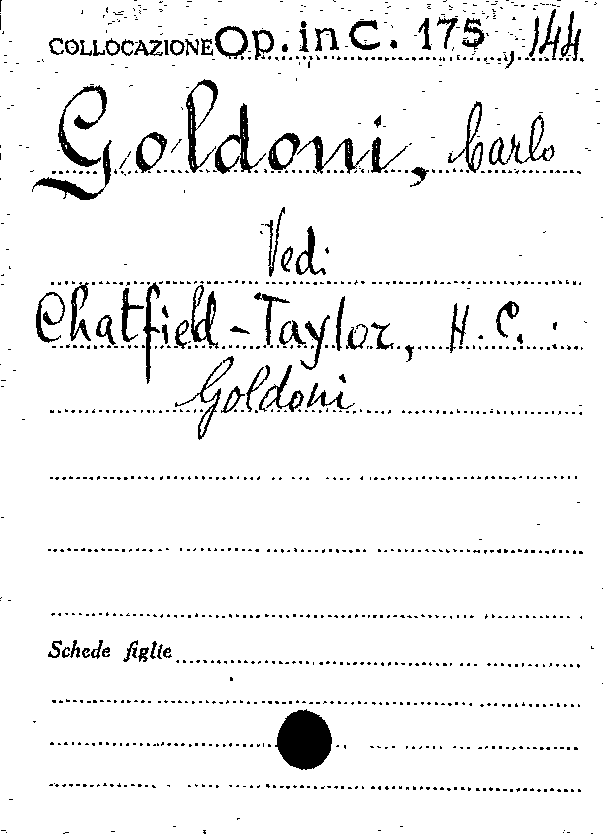 COLLOCAZIONE Op. in C. 175, 144
Goldoni, Carlo
Vedi
Chatfield-Taylor, H. C. :
Goldoni
Schede figlie